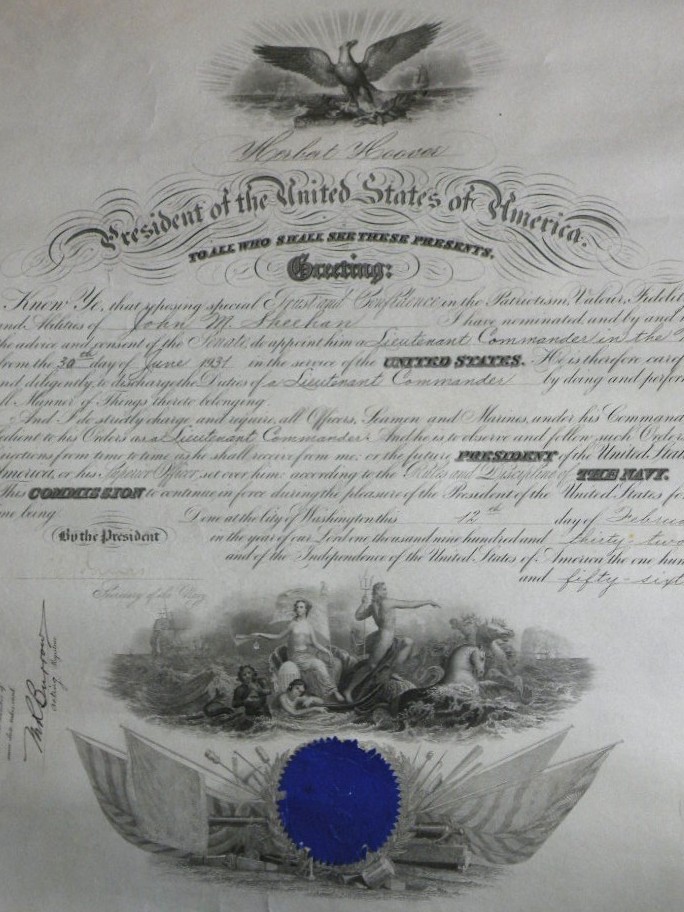 Herbert Hoover
President of the United States of America.
TO ALL WHO SHALL SEE THESE PRESENTS,
Greeting:
Know Ye, that reposing special Trust and Confidence in the Patriotism, Valour, Fidelit
and Abilities of John M. Sheehan I have nominated, and by and
the advice and consent of the Senate, do appoint him a Lieutenant Commander in the
from the 30th day of June 1931 in the service of the UNITED STATES. He is therefore caref
nd diligently, to discharge the Duties of a Lieutenant Commander by doing and perfor
ll Manner of Things thereto belonging.
And I do strictly charge, and require, all Officers, Seamen and Marines, under his Command
edient to his Orders as a Lieutenant Commander. And he is to observe and follow, such Orders
irections from time to time as he shall receive from me; or the future PRESIDENT of the United Stat
America, or his Superior Officer set over him; according to the Rules and Discipline of THE NAVY.
This COMMISSION to continue in force during the pleasure of the President of the United States for
me being. Done at the City of Washington this 12th day of Februa
By the President in the year of our Lord one thousand nine hundred and thirty-two
and of the Independence of the United States of America, the one hun
and fifty-sixt
Secretary of the Navy
Acting